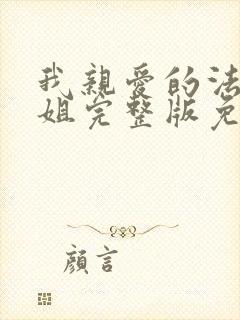 我親愛的法
姐完整版免
顏言